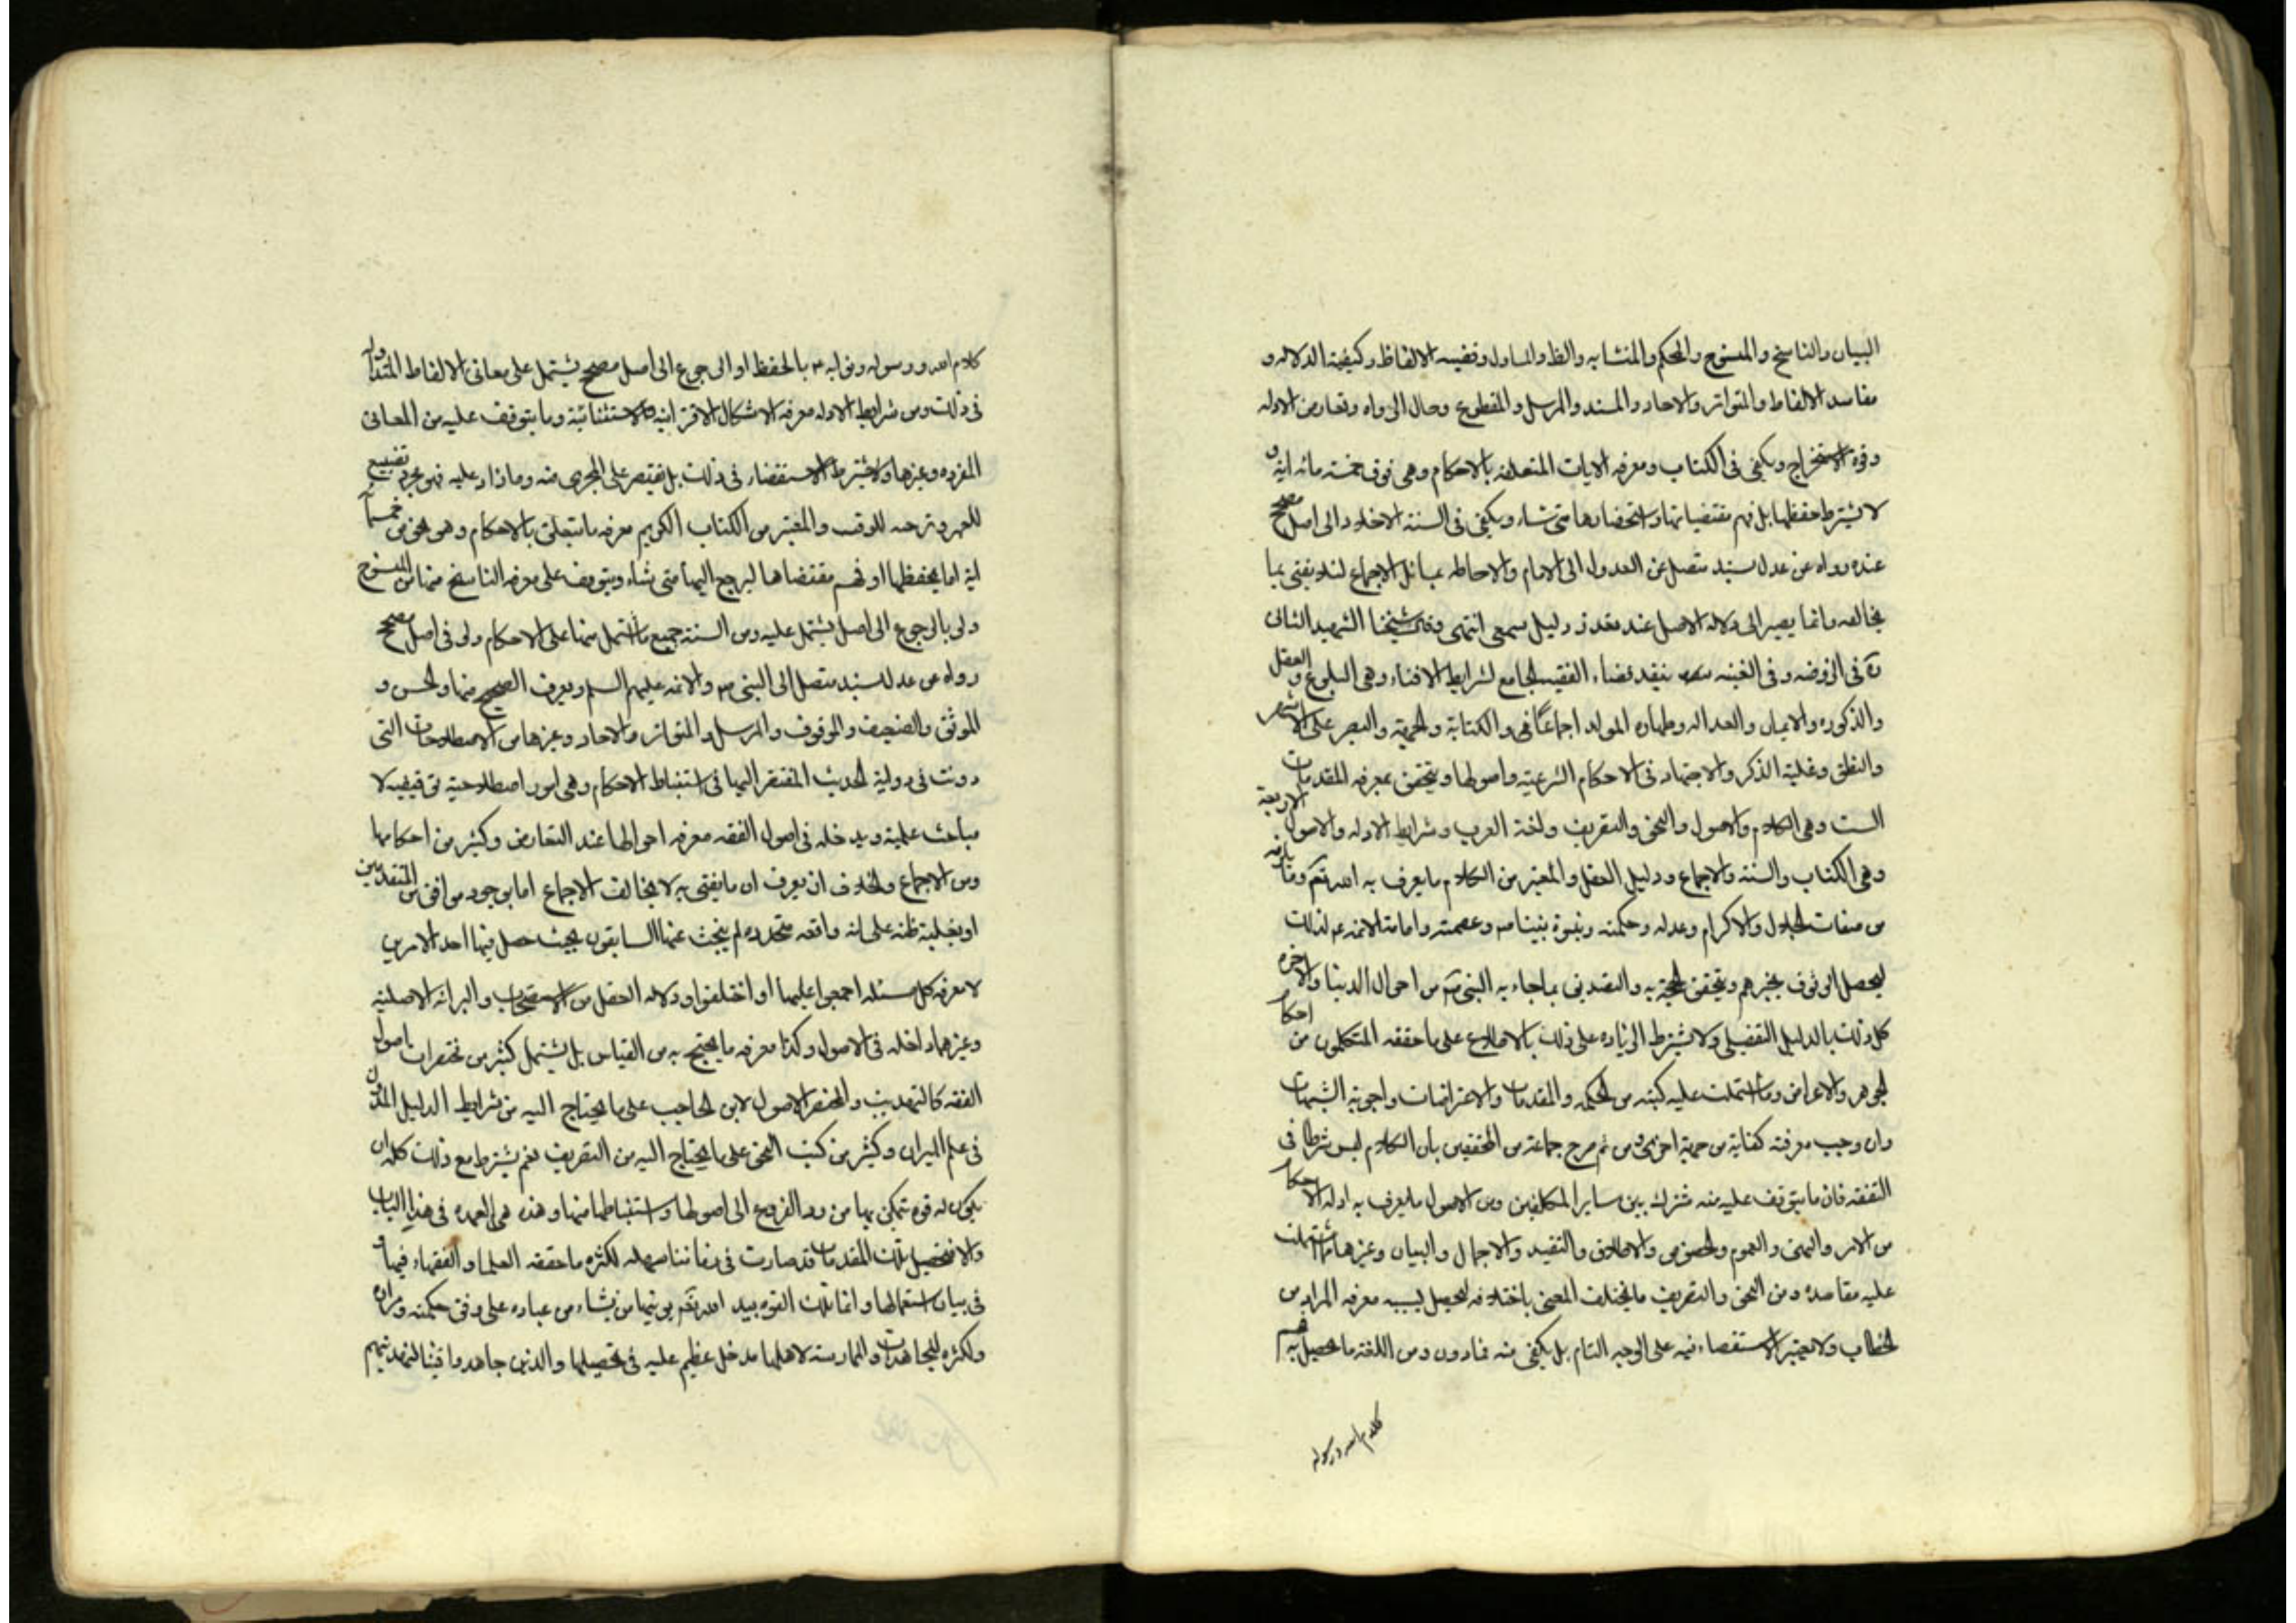 البيان والناسخ والمنسوخ والمحكم والمتشابه والظ والماول وقضيه الالفاظ وكيفية الدلاله و
مقاسد الالفاظ والمتواتر والاحاد والمسند والمرسل والمقطوع وحال الرواه وتعارض الادله
وقوه الاستخراج ويكفى فى الكتاب ومعرفه الايات المتعلقه بالاحكام وهى فوق خمسة مائه ايه و
لا يشترط حفظها بل فهم مقتضياتها واستحضارها متى شاء ويكفى فى السنة الاخلاد الى اصل مصحح
عنده رواه عن عدل بسند متصل عن العدول الى الامام والاحاطه بمسائل الاجماع لئلا يفتى بما
يخالفه وانما يصير الى دلاله الاصل عند تعذر دليل سمعى انتهى وقال شيخنا الشهيد الثانى
ره فى الروضه وفى الغيبه ينفذ قضاء الفقيه الجامع لشرايط الافتاء وهى البلوغ والعقل
والذكوره والايمان والعداله وطهاره المولد اجماعًا فى والكتابة والحرية والبصر على الاشهر
والنطق وغلبة الذكر والاجتهاد فى الاحكام الشرعيه واصولها ويتحقق بمعرفه المقدمات
الست وهى الكلام والاصول والنحو والتصريف ولغة العرب وشرايط الادله والاصول الاربعة
وهى الكتاب والسنة والاجماع ودليل العقل والمعتبر من الكلام ما يعرف به الله تعم وما يلزمه
من صفات الجلال والاكرام وعدله وحكمته ونبوة نبينا ص وعصمته وامامة الائمه ع لذلك
ليحصل الوثوق بخبرهم ويتحقق الحجة به والتصديق بما جاء به النبى ص من احوال الدنيا والاخره
كل ذلك بالدليل التفصيلى ولا يشترط الزياده على ذلك بالاطلاع على ما حققه المتكلمون من احكام
الجوهر والاعراض وما اشتملت عليه كتبه من الحكمه والمقدمات والاعتراضات واجوبة الشبهات
وان وجب معرفته كفاية من جهة اخرى ومن ثم صرح جماعة من المحققين بان الكلام ليس شرطا فى
التفقه فان ما يتوقف عليه منه مشترك بين ساير المكلفين ومن الاصول ما يعرف به ادله الاحكام
من الامر والنهى والعموم والخصوص والاطلاق والتقييد والاجمال والبيان وغيرها مما اشتملت
عليه مقاصده ومن النحو والتصريف ما يختلف المعنى باختلافه ليحصل بسببه معرفه المراد من
الخطاب ولا يعتبر الاستقصاء فيه على الوجه التام بل يكفى منه فمادون ومن اللغة ما يحصل به فهم
كلام الله ورسوله
كلام الله ورسوله ونوابه ع بالحفظ او الرجوع الى اصل مصحح يشتمل على معانى الالفاظ المتداوله
فى ذلك ومن شرايط الادله معرفه الاشكال الاقترانيه والاستثنائية وما يتوقف عليه من المعانى
المفرده وغيرها ولا يشترط الاستقصاء فى ذلك بل يقتصر على المجزى منه وما زاد عليه فهو مجرد تضييع
للعمر وترجيه للوقت والمعتبر من الكتاب الكريم معرفه ما يتعلق بالاحكام وهو نحو من خمسمائة
اية اما بحفظها او فهم مقتضاها ليرجع اليها متى شاء ويتوقف على معرفه الناسخ منها من المنسوخ
ولو بالرجوع الى اصل يشتمل عليه ومن السنة جميع ما اشتمل منها على الاحكام ولو فى اصل مصحح
رواه عن عدل بسند متصل الى النبى ص والائمه عليهم السلم ويعرف الصحيح منها والحسن و
الموثق والضعيف والموقوف والمرسل والمتواتر والاحاد وغيرها من الاصطلاحات التى
دونت فى رواية الحديث المفتقر اليها فى استنباط الاحكام وهى امور اصطلاحية توقيفيه لا
مباحث علمية ويدخله فى اصول الفقه معرفه احوالها عند التعارض وكثير من احكامها
ومن الاجماع والخلاف ان يعرف ان ما يفتى به لا يخالف الاجماع اما بوجود موافق من المتقدمين
او بغلبة ظنه على انه واقعه متجدده لم يبحث عنها السابقون بحيث حصل فيها احد الامرين
لا معرفه كل مسئله اجمعوا عليها او اختلفوا ودلاله العقل من الاستصحاب والبرائه الاصلية
وغيرهما داخله فى الاصول وكذا معرفه ما يحتج به من القياس بل يشتمل كثير من مختصرات اصول
الفقه كالتهذيب والمختصر الاصول لابن الحاجب على ما يحتاج اليه من شرايط الدليل المدون
فى علم الميزان وكثير من كتب النحو على ما يحتاج اليه من التصريف نعم يشترط مع ذلك كله ان
يكون له قوه يتمكن بها من رد الفروع الى اصولها واستنباطها منها وهذه هى العمده فى هذا الباب
والا فتحصيل تلك المقدمات قد صارت فى زماننا سهله لكثره ما حققه العلما والفقهاء فيها و
فى بيان استعمالها وانما تلك القوه بيد الله تعم يوتيها من يشاء من عباده على وفق حكمته ومراده
ولكثره المجاهدات والممارسة لاهلها مدخل عظيم عليه فى تحصيلها والذين جاهدوا فينا لنهدينهم